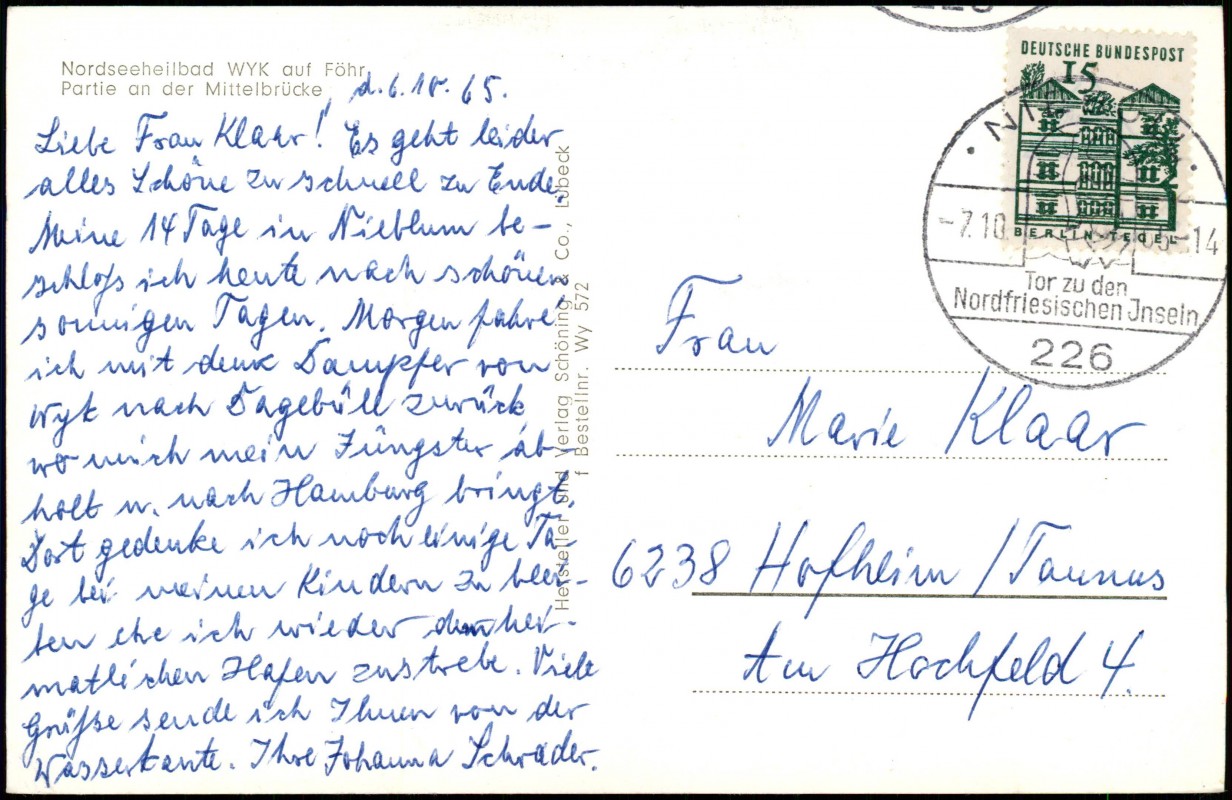 Nordseeheilbad WYK auf Föhr
Partie an der Mittelbrücke
d. 6.10.65.
Liebe Frau Klaar! Es geht leider
alles Schöne zu schnell zu Ende.
Meine 14 Tage in Nieblum be-
schloß ich heute nach schönen
sonnigen Tagen. Morgen fahre
ich mit dem Dampfer von
Wyk nach Dagebüll zurück
wo mich mein Jüngster ab-
holt u. nach Hamburg bringt.
Dort gedenke ich noch einige Ta-
ge bei meinen Kindern zu blei-
ben ehe ich wieder dem hei-
matlichen Hafen zustrebe. Viele
Grüße sende ich Ihnen von der
Wasserkante. Ihre Johanna Schrader.
Hersteller und Verlag Schöning & Co., Lübeck
f Bestellnr. Wy 572
226
DEUTSCHE BUNDESPOST
15
BERLIN-TEGEL
-7.10 65-14
Tor zu den
Nordfriesischen Inseln
226
Frau
Marie Klaar
6238 Hofheim / Taunus
Am Hochfeld 4.